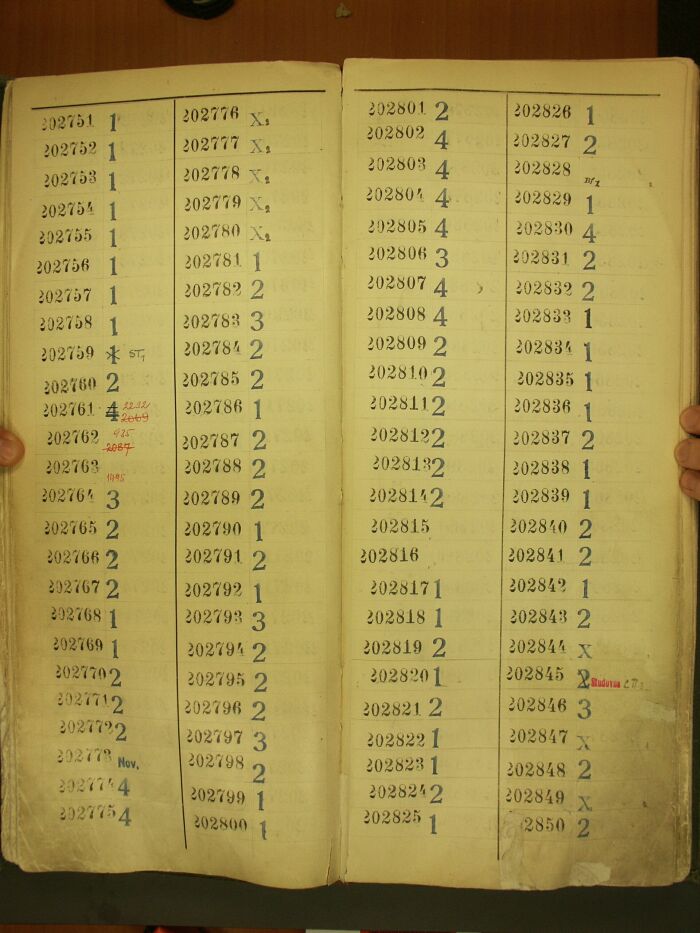 202751 1
202752 1
202753 1
202754 1
202755 1
202756 1
202757 1
202758 1
202759 1 ST,
202760 2
202761 4 2232 2069
202762 435 2087
202763 1495
202764 3
202765 2
202766 2
202767 2
202768 1
202769 1
202770 2
202771 2
202772 2
202773 Nov.
202774 4
202775 4
202776 X2
202777 X2
202778 X2
202779 X2
202780 X2
202781 1
202782 2
202783 3
202784 2
202785 2
202786 1
202787 2
202788 2
202789 2
202790 1
202791 2
202792 1
202793 3
202794 2
202795 2
202796 2
202797 3
202798 2
202799 1
202800 1
202801 2
202802 4
202803 4
202804 4
202805 4
202806 3
202807 4
202808 4
202809 2
202810 2
202811 2
202812 2
202813 2
202814 2
202815
202816
202817 1
202818 1
202819 2
202820 1
202821 2
202822 1
202823 1
202824 2
202825 1
202826 1
202827 2
202828
202829 1
202830 4
202831 2
202832 2
202833 1
202834 1
202835 1
202836 1
202837 2
202838 1
202839 1
202840 2
202841 2
202842 1
202843 2
202844 X
202845 2
202846 3
202847 X
202848 2
202849 X
2850 2